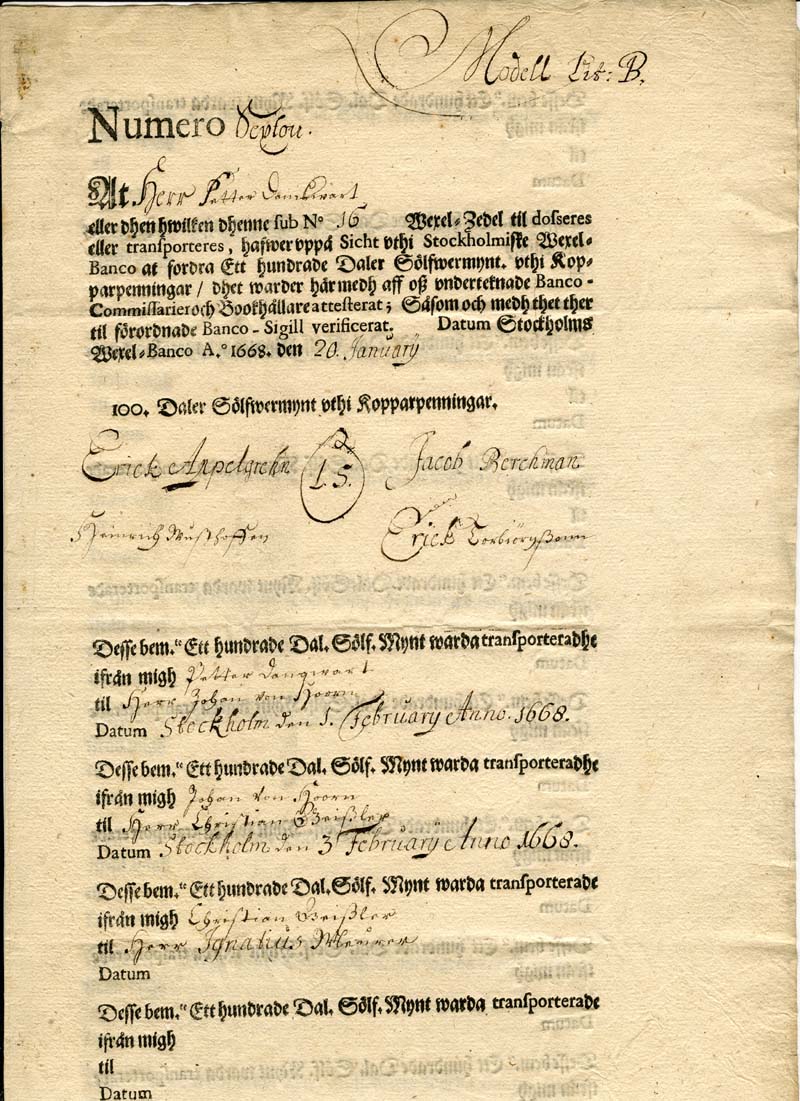 Modell Lit: B.
Numero Sexton.
At Herr Petter Danckwart
eller dhen hwilken dhenne sub N° 16 Wexel-Zedel til dosseres
eller transporteres, hafwer uppå Sicht uthi Stockholmiske Wexel-
Banco at fordra Ett hundrade Daler Sölfwermynt. uthi Kop-
parpenningar / dhet warder här medh aff oß underteknade Banco-
Commissarier och Bookhållare attesterat; Såsom och medh thet ther
til förordnade Banco-Sigill verificerat. Datum Stockholms
Wexel-Banco A.° 1668. den 20. January
100. Daler Sölfwermynt uthi Kopparpenningar.
Erick Appelgrehn L.S. Jacob Berchman
Heinrich Wusthoffen Erick Torbiörgßonn
Desse bem.te Ett hundrade Dal. Sölf. Mynt warda transporteradhe
ifrån migh Petter Danqwart
til Herr Johan von Hoorn
Datum Stockholm den 1. February Anno. 1668.
Desse bem.te Ett hundrade Dal. Sölf. Mynt warda transporteradhe
ifrån migh Johan von Hoorn
til Herr Christian Geißler
Datum Stockholm den 3 February Anno 1668.
Desse bem.te Ett hundrade Dal. Sölf. Mynt warda transporterade
ifrån migh Christian Geißler
til Herr Ignatius Meurer
Datum
Desse bem.te Ett hundrade Dal. Sölf. Mynt warda transporterade
ifrån migh
til
Datum